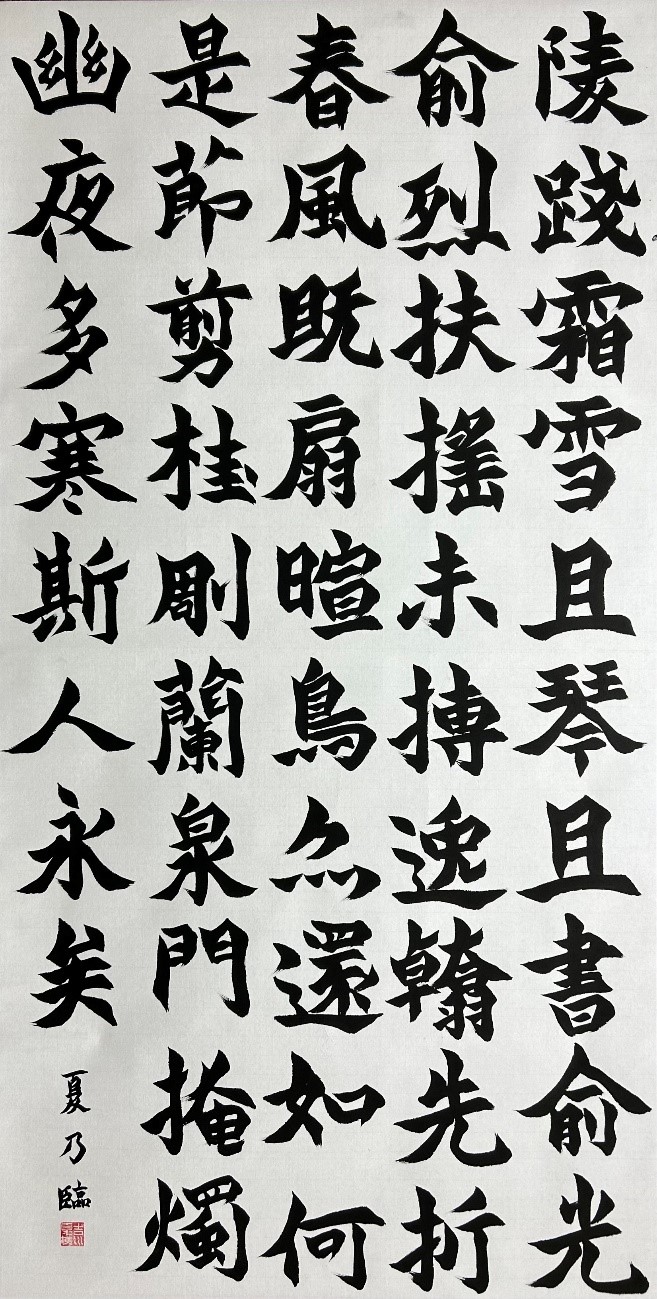 陵踐霜雪且琴且書俞光
俞烈扶搖未搏逸翰先折
春風既扇暄鳥尒還如何
是節剪桂剛蘭泉門掩燭
幽夜多寒斯人永矣
夏乃臨